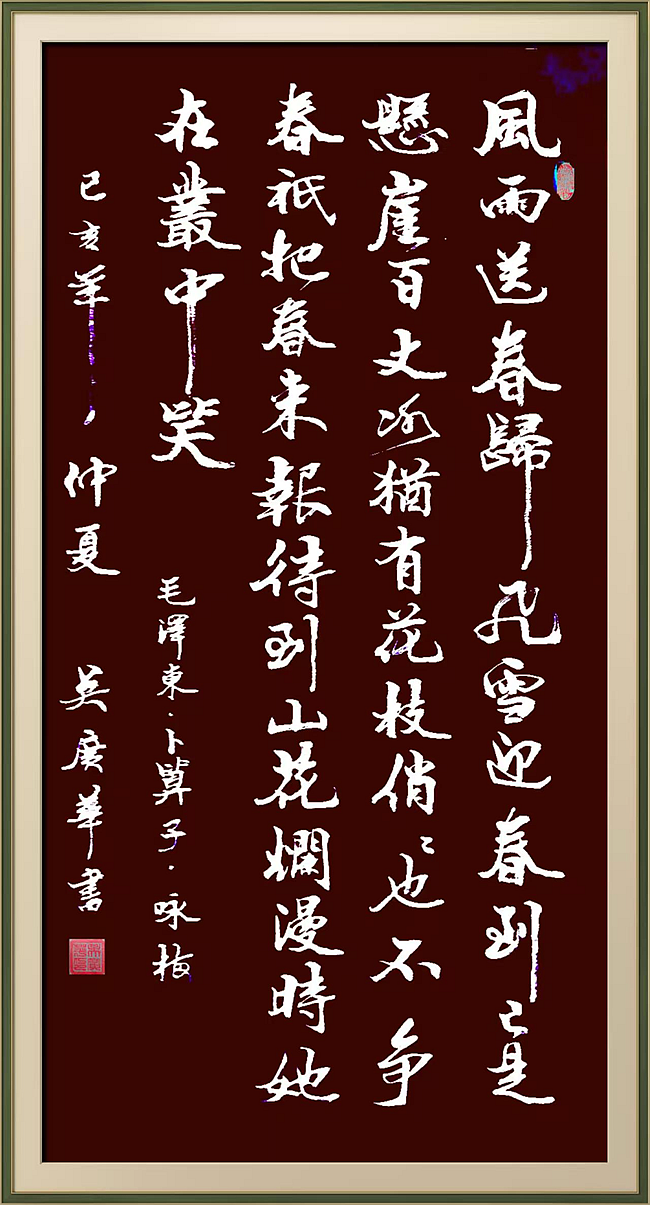 風雨送春歸飛雪迎春到已是
懸崖百丈冰猶有花枝俏々也不争
春祇把春来報待到山花爛漫時她
在叢中笑
毛澤東·卜算子·咏梅
己亥年仲夏
吴廣華書